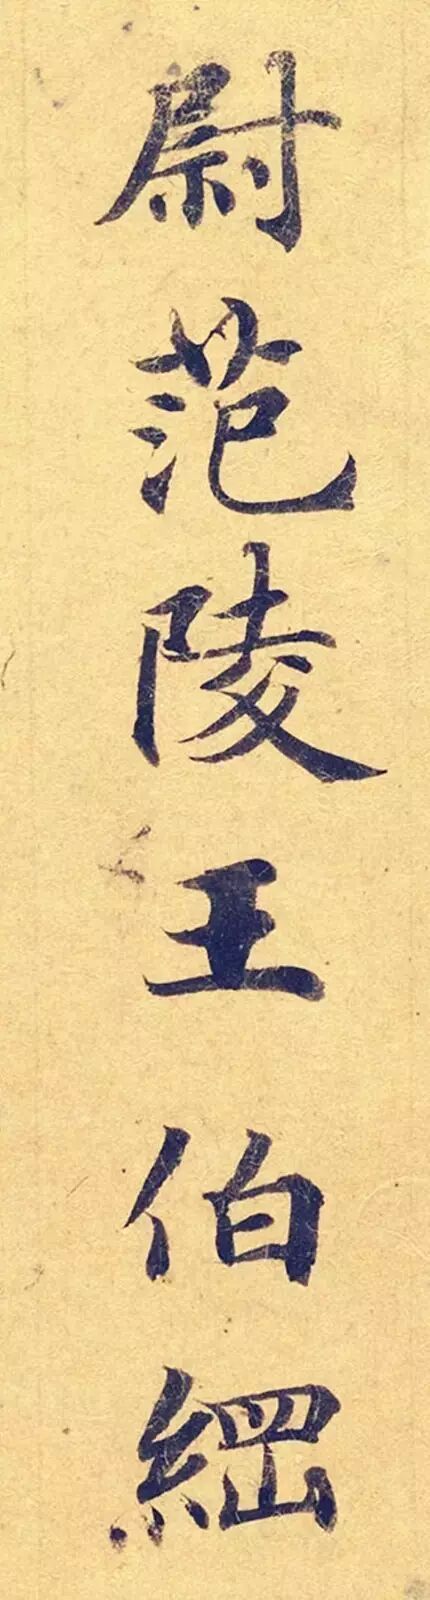 尉范陵王伯綱